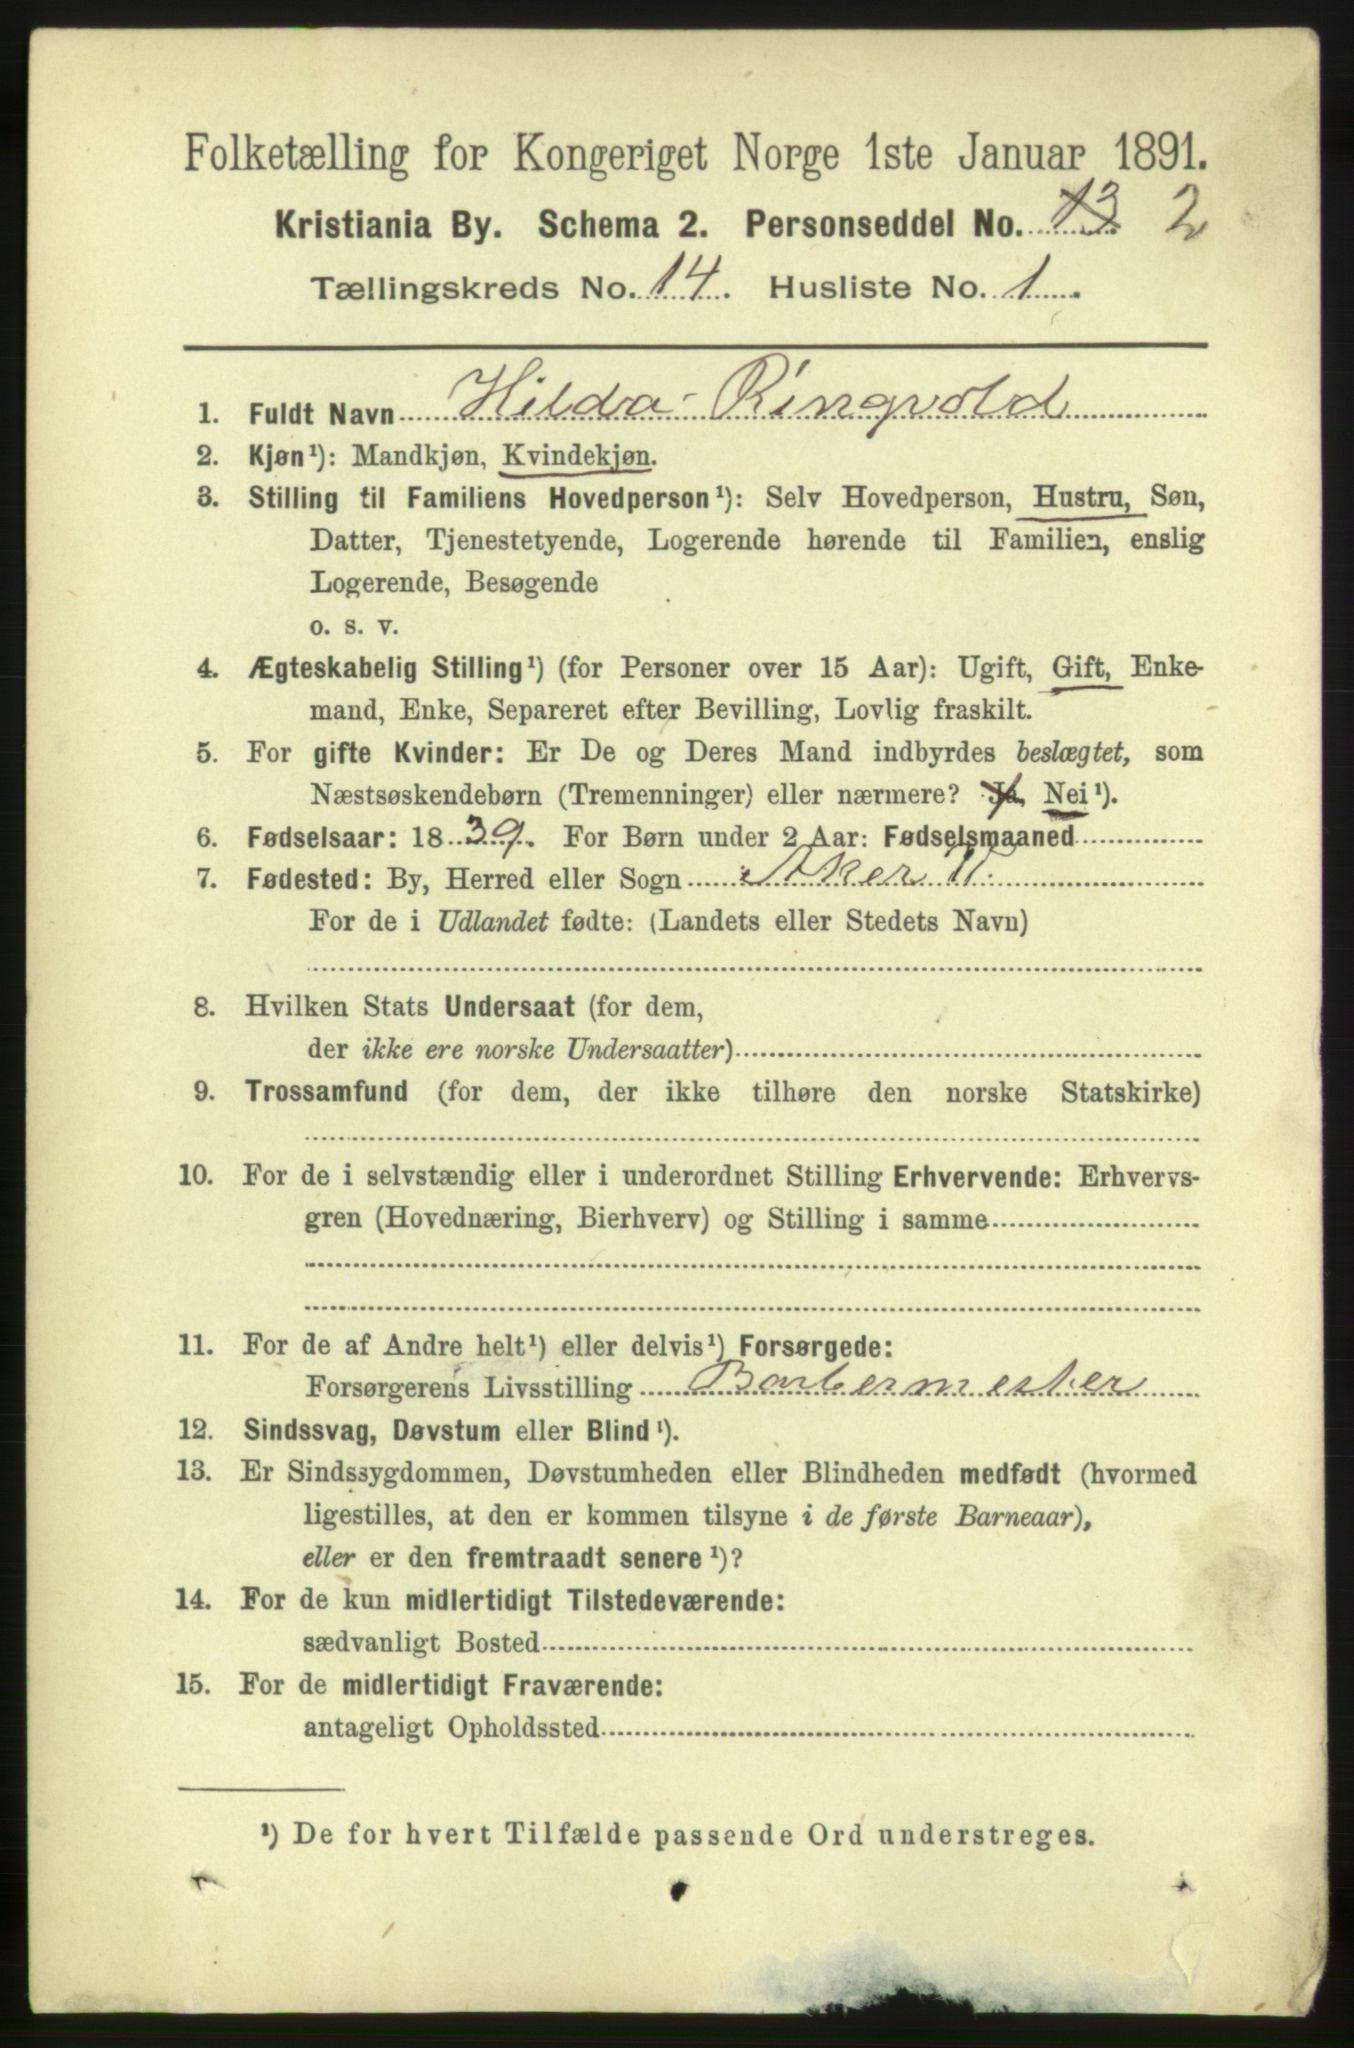 Folketælling for Kongeriget Norge 1ste Januar 1891.
Kristiania By. Schema 2. Personseddel No. 13 2
Tællingskreds No. 14. Husliste No. 1.
1. Fuldt Navn Hilda Ringvold
2. Kjøn¹): Mandkjøn, Kvindekjøn.
3. Stilling til Familiens Hovedperson¹): Selv Hovedperson, Hustru, Søn,
Datter, Tjenestetyende, Logerende hørende til Familien, enslig
Logerende, Besøgende
o. s. v.
4. Ægteskabelig Stilling¹) (for Personer over 15 Aar): Ugift, Gift, Enke-
mand, Enke, Separeret efter Bevilling, Lovlig fraskilt.
5. For gifte Kvinder: Er De og Deres Mand indbyrdes beslægtet, som
Næstsøskendebørn (Tremenninger) eller nærmere? Ja, Nei¹).
6. Fødselsaar: 1839. For Børn under 2 Aar: Fødselsmaaned
7. Fødested: By, Herred eller Sogn Aker
For de i Udlandet fødte: (Landets eller Stedets Navn)
8. Hvilken Stats Undersaat (for dem,
der ikke ere norske Undersaatter)
9. Trossamfund (for dem, der ikke tilhøre den norske Statskirke)
10. For de i selvstændig eller i underordnet Stilling Erhvervende: Erhvervs-
gren (Hovednæring, Bierhverv) og Stilling i samme
11. For de af Andre helt¹) eller delvis¹) Forsørgede:
Forsørgerens Livsstilling Barbermester
12. Sindssvag, Døvstum eller Blind¹).
13. Er Sindssygdommen, Døvstumheden eller Blindheden medfødt (hvormed
ligestilles, at den er kommen tilsyne i de første Barneaar),
eller er den fremtraadt senere¹)?
14. For de kun midlertidigt Tilstedeværende:
sædvanligt Bosted
15. For de midlertidigt Fraværende:
antageligt Opholdssted
¹) De for hvert Tilfælde passende Ord understreges.